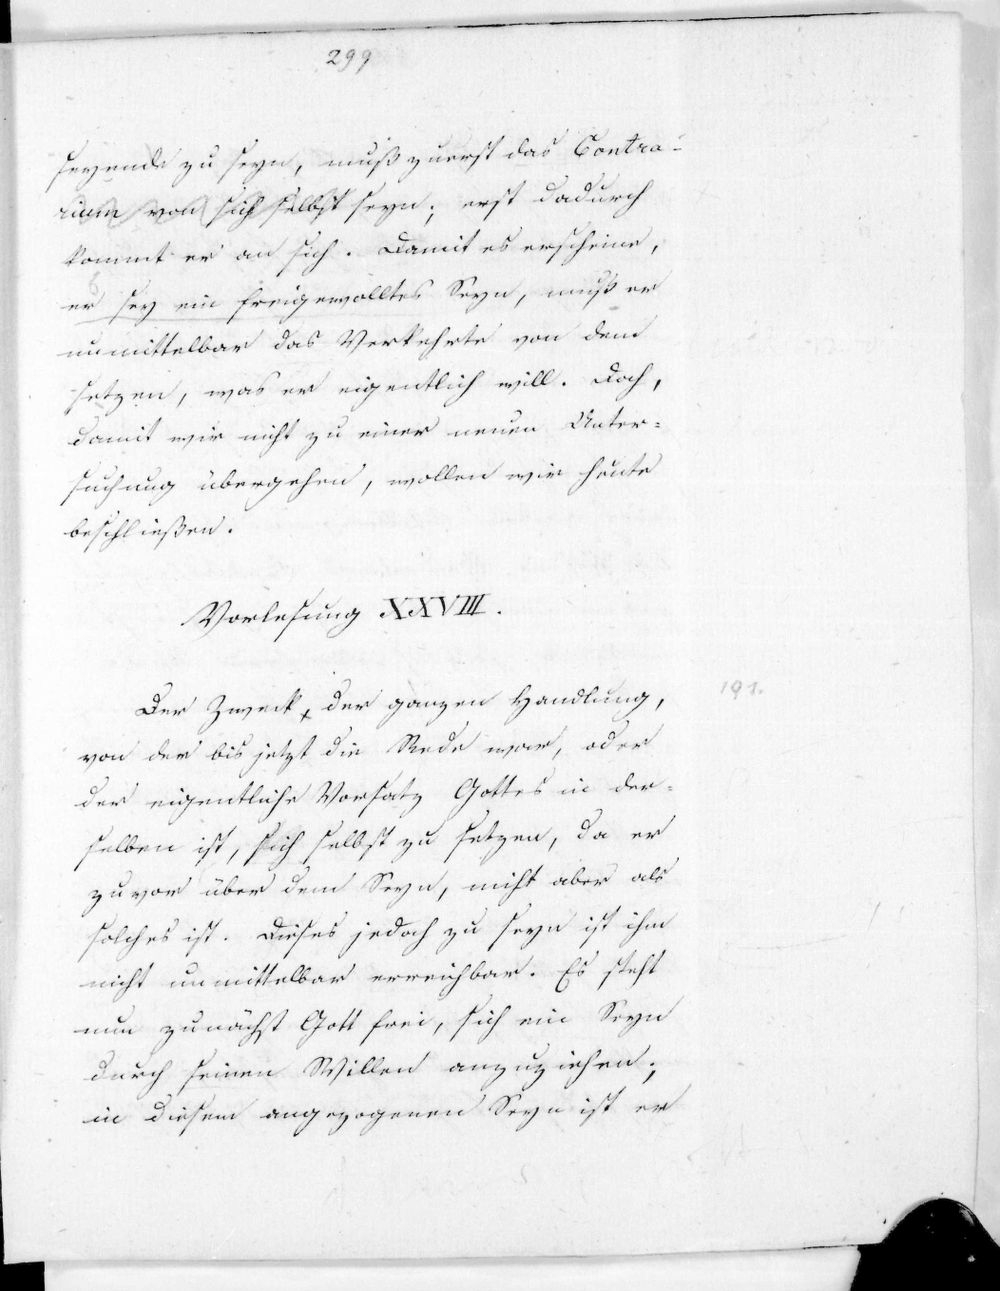 299
seyende zu seyn, muß zuerst das Contra-
rium von sich selbst seyn; erst dadurch
kommt er an sich. Damit es erscheine,
er sey ein freigewolltes Seyn, muß er
unmittelbar das Verkehrte von dem
setzen, was er eigentlich will. Doch,
damit wir nicht zu einer neuen Unter=
suchung übergehen, wollen wir heute
beschließen.
Vorlesung XXVIII.
Der Zweck, der ganzen Handlung,
191.
von der bis jetzt die Rede war, oder
der eigentliche Vorsatz Gottes in der=
selben ist, sich selbst zu setzen, da er
zuvor über dem Seyn, nicht aber als
solches ist. Dieses jedoch zu seyn ist ihm
nicht unmittelbar erreichbar. Es steht
nun zunächst Gott frei, sich ein Seyn
durch seinen Willen anzuziehen;
in diesem angezogenen Seyn ist er